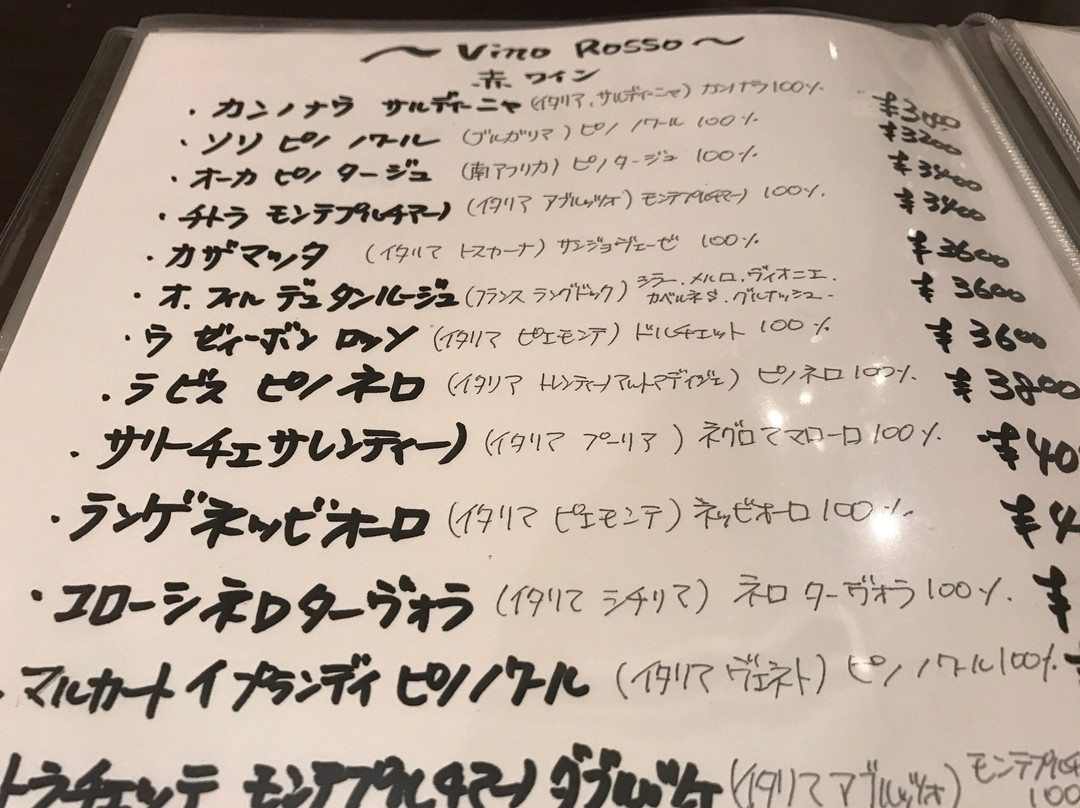 〜 Vino Rosso 〜
赤ワイン
・カンノナウ サルディーニャ (イタリア、サルディーニャ) カンナウ 100%
・ソリ ピノ ノワール (ブルガリア) ピノ ノワール 100% ¥3200
・オーカ ピノ タージュ (南アフリカ) ピノタージュ 100% ¥3400
・チトラ モンテプルチアーノ (イタリア アブルッツォ) モンテプルチアーノ 100% ¥3400
・カザマッタ (イタリア トスカーナ) サンジョヴェーゼ 100% ¥3600
・オ.フィル デュタンルージュ (フランス ラングドック) シラー.メルロ.ヴィオニエ. ¥3600
カベルネS.グルナッシュ-
・ラ ゼィーボン ロッソ (イタリア ピエモンテ) ドルチェット 100% ¥3600
・ラビス ピノ ネロ (イタリア トレンティーノアルトアディジェ) ピノネロ 100% ¥3800
・サリーチェサレンティーノ (イタリア プーリア) ネグロアマローロ 100% ¥40
・ランゲネッビオーロ (イタリア ピエモンテ) ネッビオーロ 100% ¥4
・コローシネロターヴォラ (イタリア シチリア) ネロ ターヴォラ 100% ¥
・マルカート イ ブランディ ピノノワール (イタリア ヴェネト) ピノ ノワール 100%
トラチェッテ モンテプルチアーノ ダブルッツォ (イタリア アブルッツォ) モンテプルチ
100